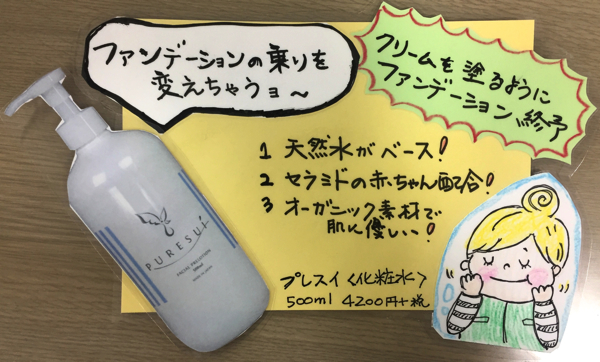 ファンデーションの乗りを
変えちゃうョ〜
クリームを塗るように
ファンデーション終了
1 天然水がベース!
2 セラミドの赤ちゃん配合!
3 オーガニック素材で
肌に優しい!
プレスイ〈化粧水〉
500ml 4200円+税
PURESUi